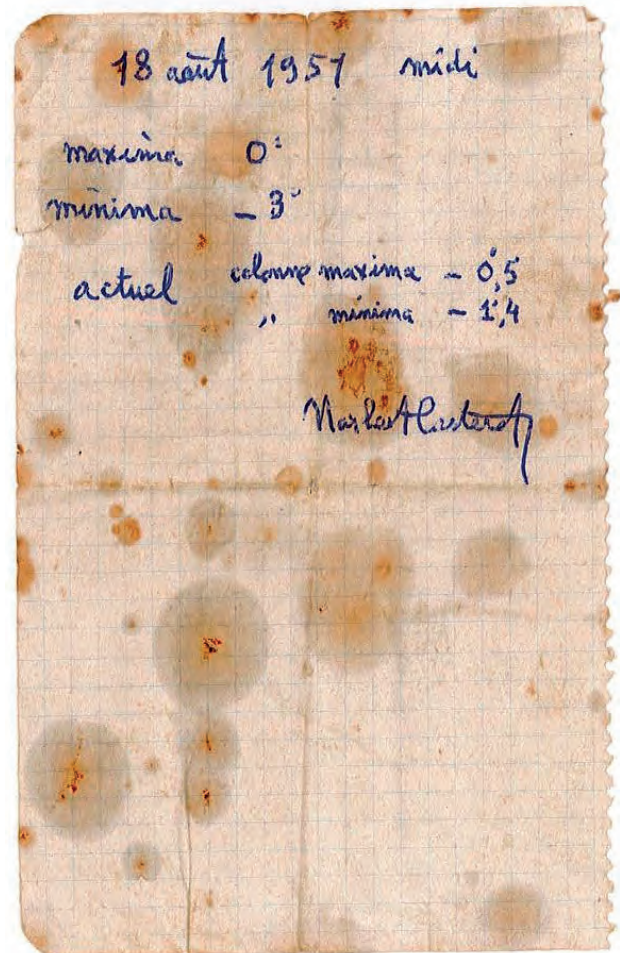 18 août 1951 midi
maxima 0°
minima - 3°
actuel colonne maxima - 0°,5
„ minima - 1°,4
Norbert Casteret